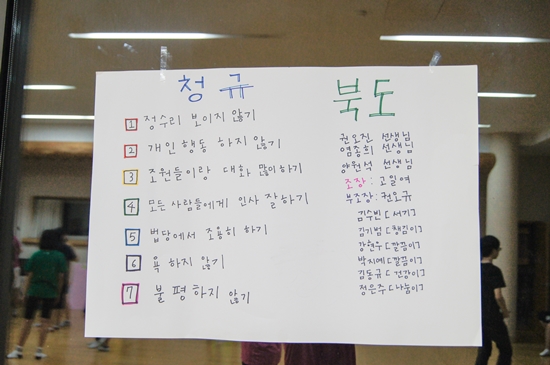 청규
1 정수리 보이지 않기
2 개인 행동 하지 않기
3 조원들이랑 대화 많이하기
4 모든 사람들에게 인사 잘하기
5 법당에서 조용히 하기
6 욕 하지 않기
7 불평하지 않기
북도
권오진 선생님
염종희 선생님
양원석 선생님
조장: 고일여
부조장: 권오규
김수빈 [서기]
김기범 [챙김이]
강현누 [깔끔이]
박지예 [깔끔이]
김동규 [건강이]
정은주 [나눔이]